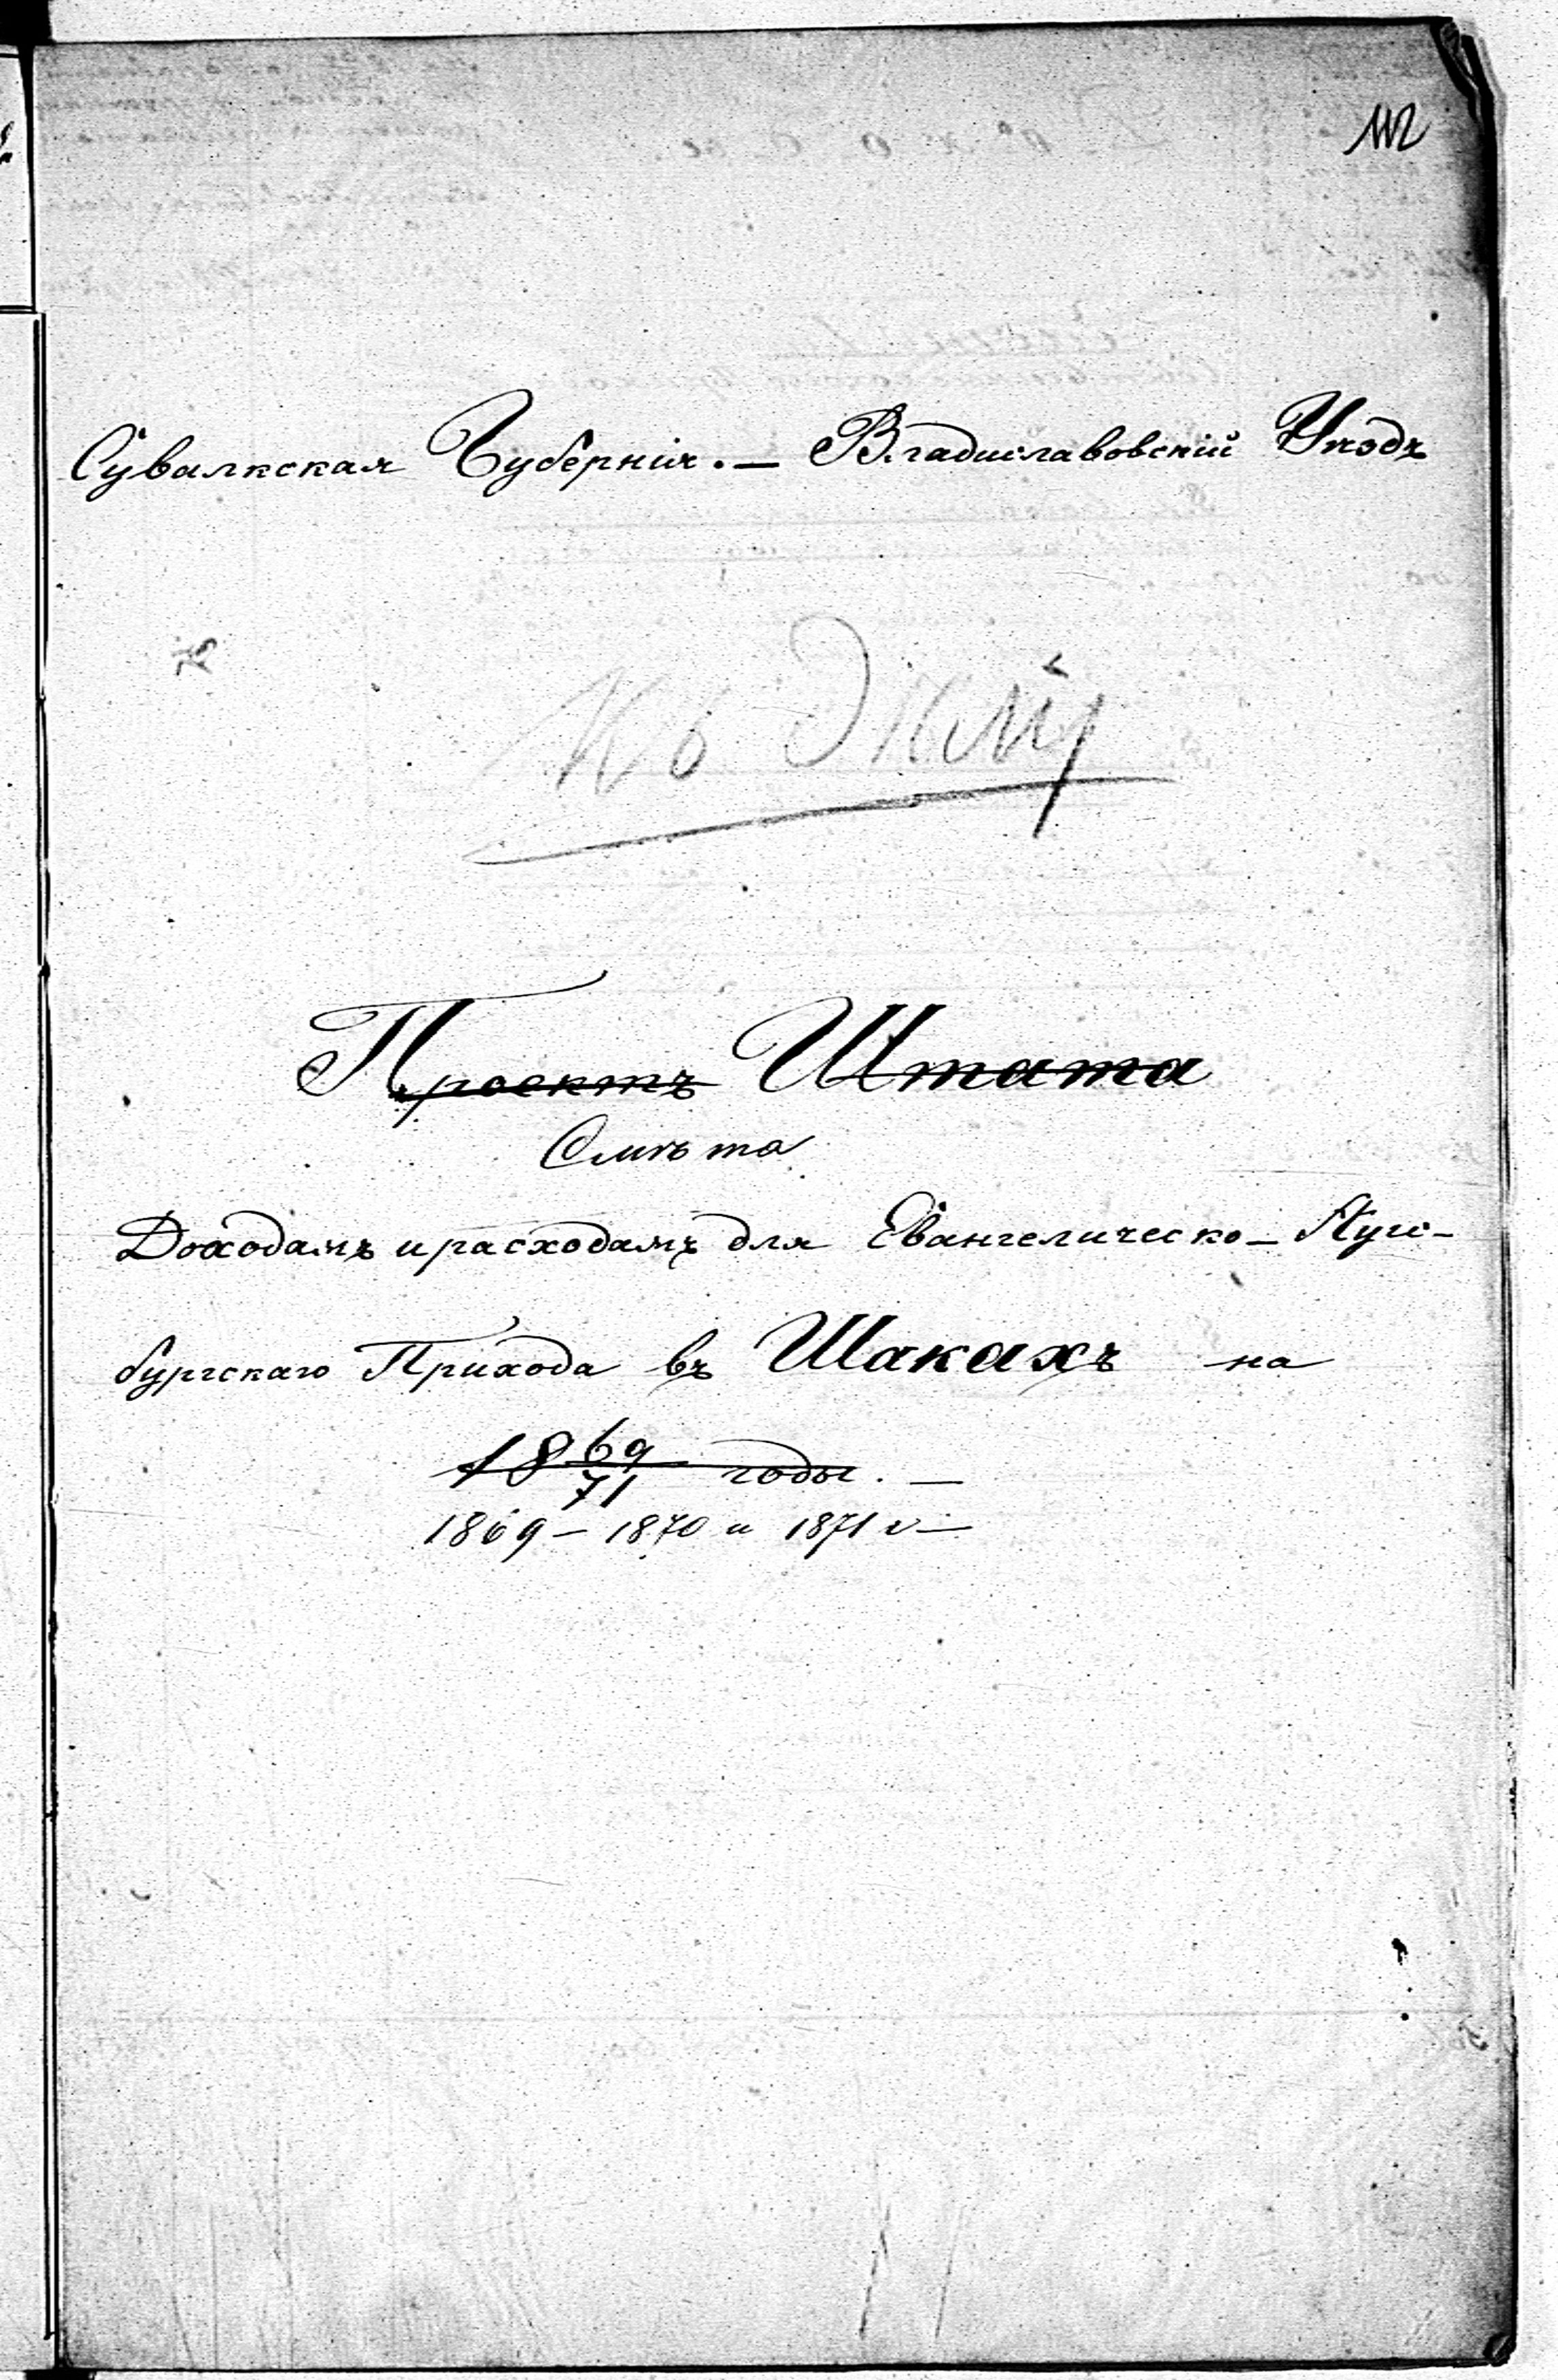 112
Сувалкская Губернія. — Владиславовскій Уѣздъ
Проектъ Штата
Смѣта
Доходамъ и расходамъ для Евангелическо-Аугс-
бургскаго Прихода въ Шакахъ на
18 69/71 годы. —
1869 – 1870 и 1871 г —